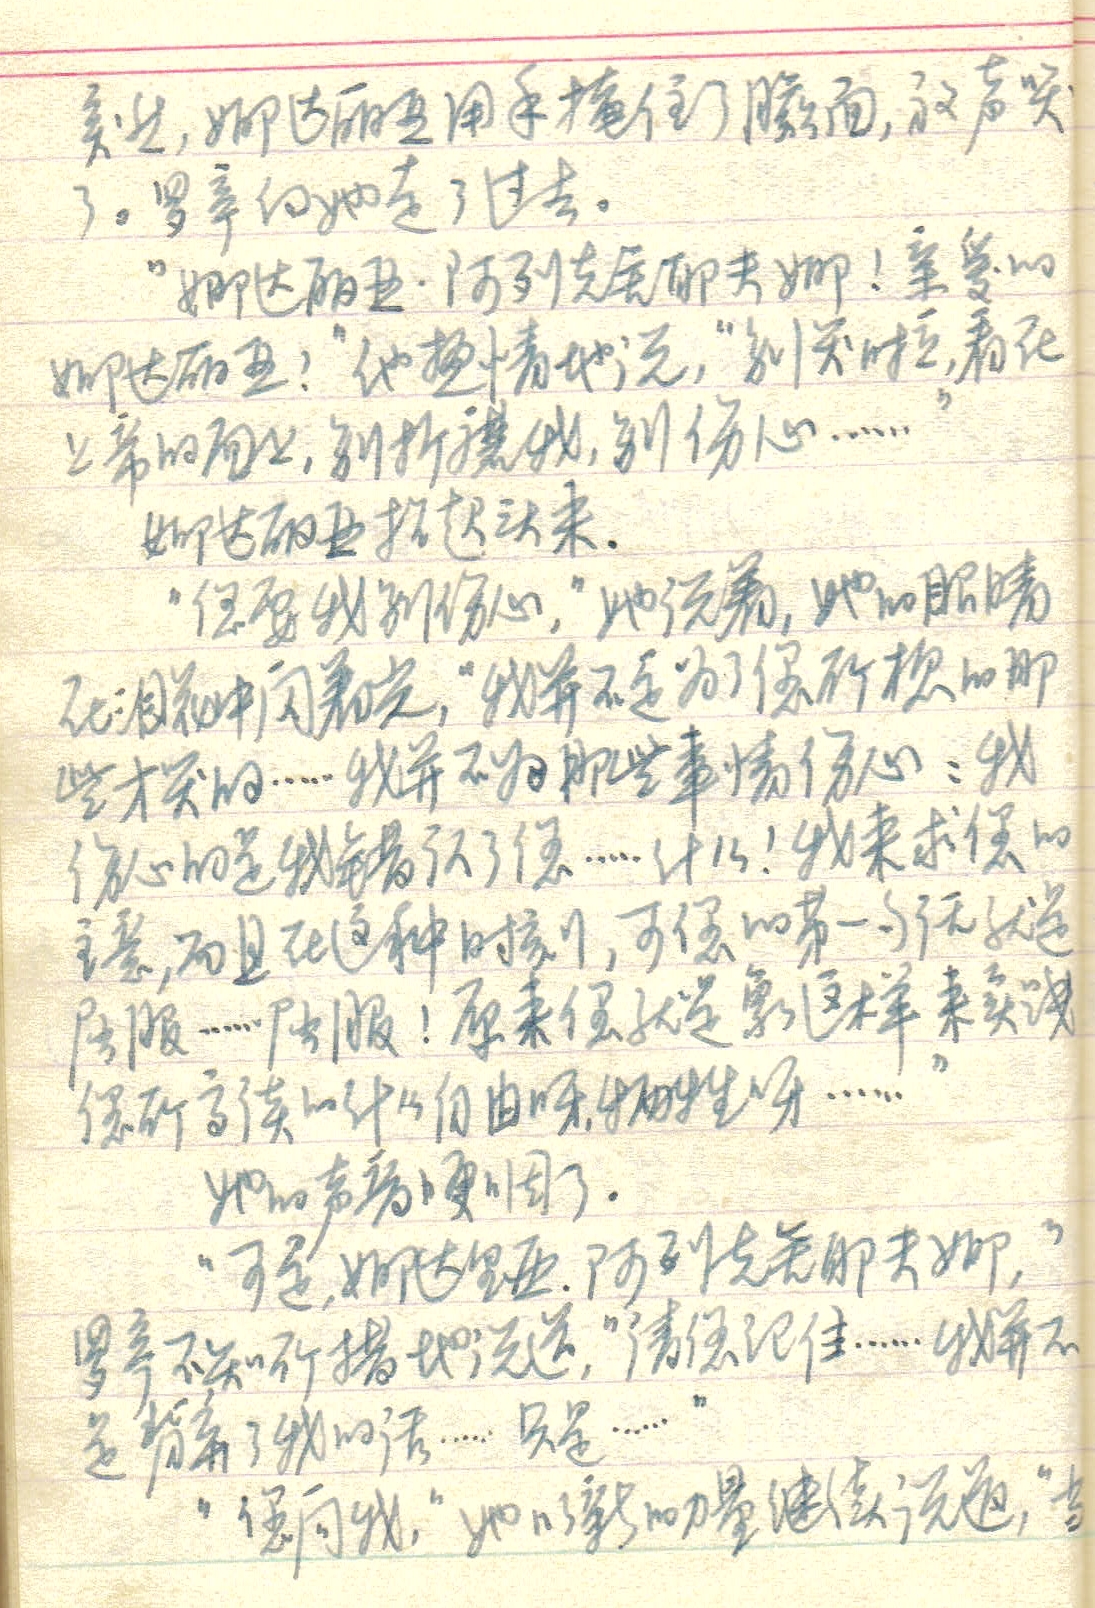 突然，娜达丽亚用手掩住了脸面，放声哭
了。罗亭向她走了过去。
“娜达丽亚·阿列克赛耶夫娜！亲爱的
娜达丽亚！”他热情地说，“别哭啦，看在
上帝的面上，别折磨我，别伤心……”
娜达丽亚抬起头来。
“您要我别伤心，”她说着，她的眼睛
在泪花中闪着光，“我并不是为了您所想的那
些才哭的……我并不为那些事情伤心：我
伤心的是我错认了您……什么！我来求您的
主意，而且在这种时刻，可您的第一句话就是
屈服……屈服！原来您就是这样来实践
您所高谈的什么自由呀，牺牲呀……”
她的声音哽咽了。
“可是，娜达里亚·阿列克赛耶夫娜，”
罗亭不知所措地说道，“请您记住……我并不
是背弃了我的话……只是……”
“您问我，”她以新的力量继续说道，“当